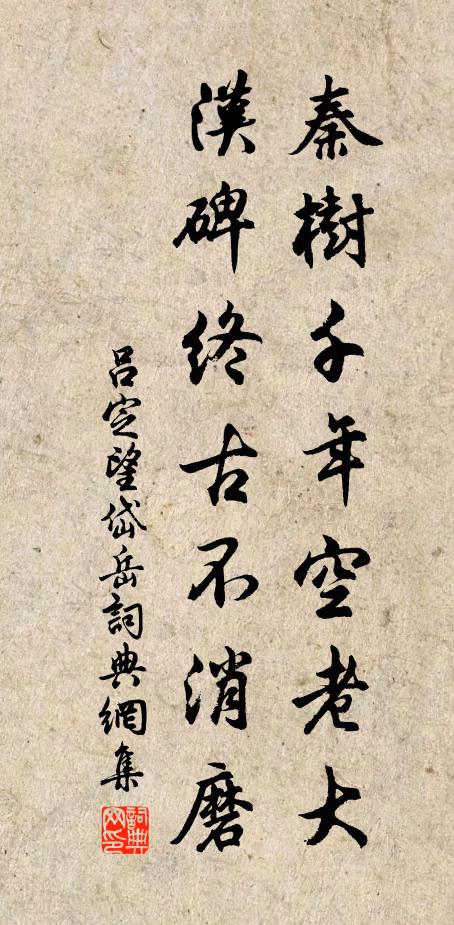 秦樹千年空老大
漢碑終古不消磨
吕定望岱岳詞典網集
詞典網印